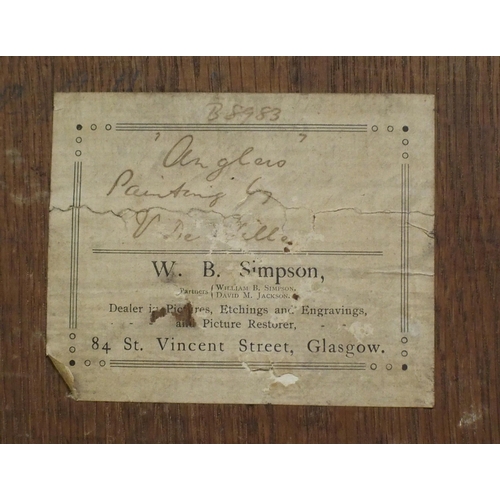 B8983
"Anglers"
Painting by
V de Ville
W. B. Simpson,
Partners { William B. Simpson.
David M. Jackson.
Dealer in Pictures, Etchings and Engravings,
and Picture Restorer,
84 St. Vincent Street, Glasgow.